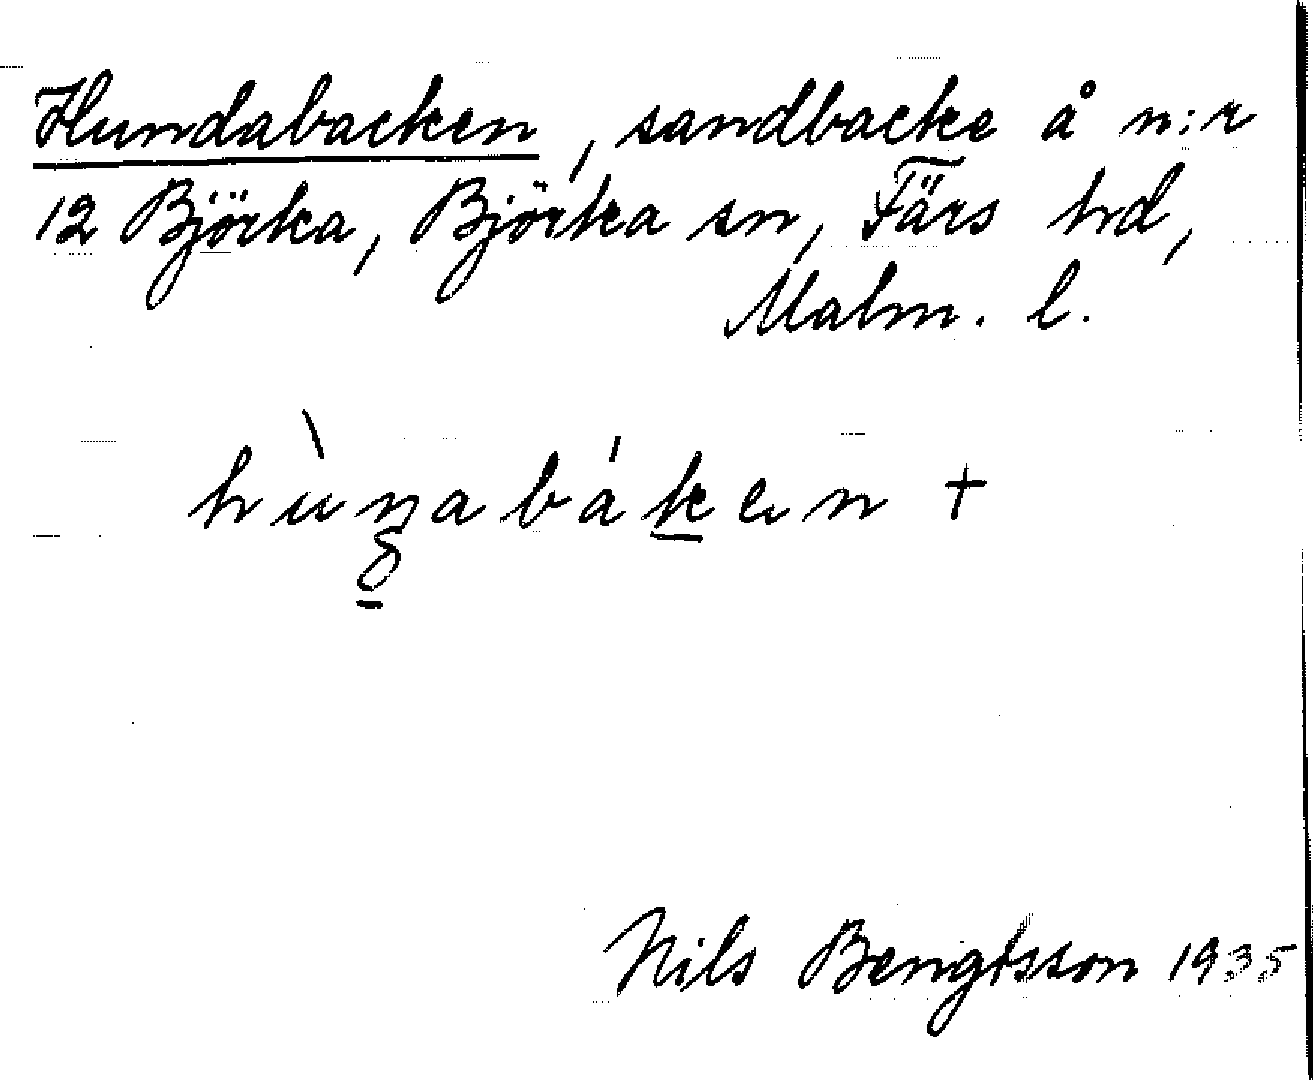 Hundabacken, sandbacke å n:r
12 Björka, Björka sn, Färs hd,
Malm. l.
hùnabáken +
Nils Bengtsson 1935